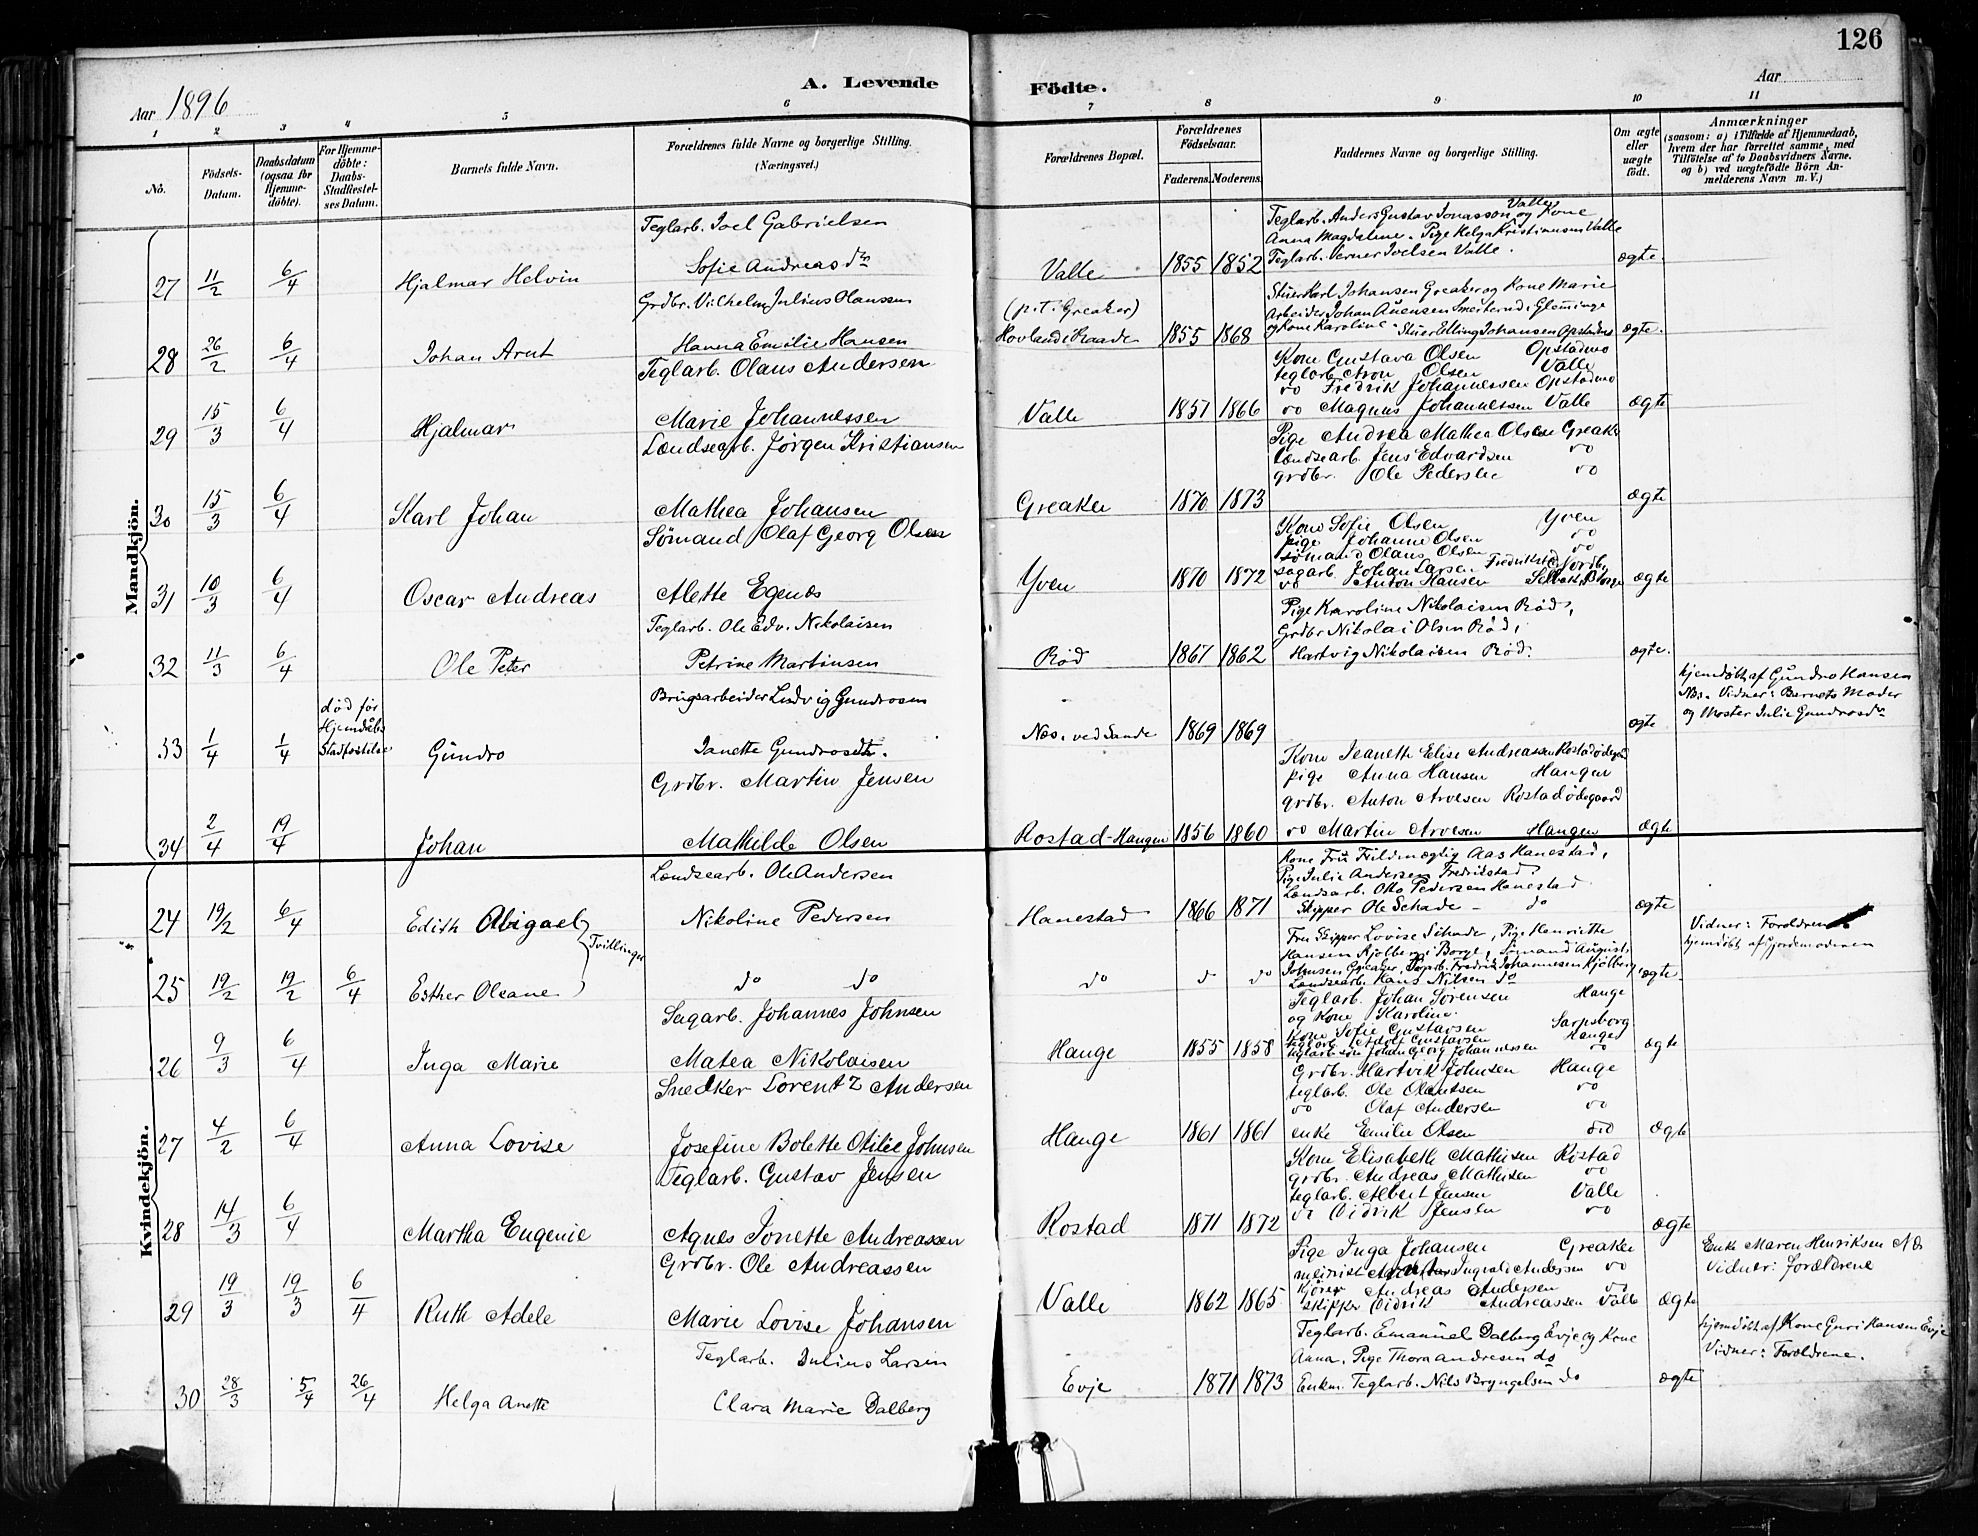 126
A. Levende Födte.
Aar 1896
Aar
1 2 3 4 5 6 7 8 9 10 11
No.
Födsels-Datum.
Daabsdatum (ogsaa for Hjemme-döbte).
For Hjemme-döbte: Daabs-Stadfæstel-ses Datum.
Barnets fulde Navn.
Forældrenes fulde Navne og borgerlige Stilling. (Næringsvei.)
Forældrenes Bopæl.
Forældrenes Födselsaar.
Faderens. Moderens.
Faddernes Navne og borgerlige Stilling.
Om ægte eller uægte födt.
Anmærkninger
(saasom: a) i Tilfælde af Hjemmedaab, hvem der har forrettet samme, med Tilföielse af to Daabsvidners Navne. og b) ved uægtefödte Börn An-melderens Navn m. V.)
Mandkjön.
Teglarb. Joel Gabrielsen
27 11/2 6/4 Hjalmar Helvin Sofie Andreasdr
Valle 1855 1852
Teglarb. Anders Gustav Jonasson Valle og Kone
Anna Magdalene. Pige Helga Kristiansen Valle
Teglarb. Verner Joelsen Valle. ægte
Grdbr. Vilhelm Julius Hanssen
28 26/2 6/4 Johan Arnt Hanna Emilie Hansen
(p.t. Greaker)
Hovland i Raade 1855 1868
Karl Johansen Greaker og Kone Marie
Arbeider Johan
og Kone Karoline Johansen Opstadmo ægte.
Teglarb. Olaus Andersen
29 15/3 6/4 Hjalmar Marie Johannessen
Valle 1857 1866
Kone Gustava Olsen Opstadmo
teglarb. Aron Olsen Valle
do Fredrik Johannessen Opstadmo
do Magnus Johannessen Valle ægte
Lændsearb. Jørgen Kristiansen
30 15/3 6/4 Karl Johan Mathea Johansen
Greaker 1870 1873
Pige Andrea Mathea Olsen Greaker
Lændsearb. Jens Edvardsen do
grdbr. Ole Pedersen do
ægte
Sømand Olaf Georg Olsen
31 10/3 6/4 Oscar Andreas Alette Egenæs
Yven 1870 1872
Kone Sofie Olsen Yven
pige Johanne Olsen do
sømand Olaus Olsen do
sagarb. Johan Larsen Fredrikstad
do Anton Hansen ægte
Teglarb. Ole Edv. Nikolaisen
32 11/3 6/4 Ole Peter Petrine Martinsen
Rød 1867 1862
Pige Karoline Nikolaisen Rød,
Grdbr Nikolai Olsen Rød,
Hartvig Nikolaisen Rød. ægte.
død før Hjemdåbs Stadfæstelse
Brugsarbeider Ludvig Gundrosen
33 1/4 1/4 Gundro Janette Gundrosdtr.
Næs ved Sande 1869 1869 ægte
hjemdøbt af Gundro Hansen
Næs. Vidner: Barnets Moder
og Moster Julie Gundrosdr
Grdbr. Martin Jensen
34 2/4 19/4 Johan Mathilde Olsen
Rostad-Hangen 1856 1860
Kone Jeanette Elise Andreassen Rostadødegaard
pige Anna Hansen Hangen
grdbr. Anton Arvesen Rostadødegaard
do Martin Arvesen Hangen ægte
Kvindekjön.
Lændsearb. Ole Andersen
24 19/2 6/4 Edith Abigael Nikoline Pedersen
Tvillinger
Hanestad 1866 1871
Kone Fru Aas Hanestad,
Pige Julie Andersen Fredrikstad,
Lændsarb. Otto Pedersen Hanestad
Skipper Ole Schade - do ægte
25 19/2 19/2 6/4 Esther Oleane do do
do do do
Fru Skipper Lovise Schade, Pige Henriette
Hansen Kjølberg i Borge, Sømand August
Johnsen Greaker, Fredrik Johannesen Kjölberg,
Lændsearb. Hans Nilsen do ægte
Vidner: Foroldrene
hjemdöbt af Gjordemoderen
Sagarb. Johannes Johnsen
26 9/3 6/4 Inga Marie Matea Nikolaisen
Hauge 1855 1858
Teglarb. Johan Sørensen Hauge
og Kone Karoline.
Kone Sofie Gustavsen Sarpsborg
Adolf Gustavsen Hauge
Johan Georg Johannessen do ægte
Snedker Lorentz Andersen
27 4/2 6/4 Anna Lovise Josefine Bolette Otilie Johnsen
Hauge 1861 1861
Grdbr. Hartvik Johnsen Hauge
teglarb. Ole Olautsen do
do Olaf Andersen do
enke Emilie Olsen do ægte
Teglarb. Gustav Jensen
28 14/3 6/4 Martha Eugenie Agnes Jonette Andreassen
Rostad 1871 1872
Kone Elisabeth Mathisen Rostad
grdbr. Andreas Mathisen do
teglarb. Albert Jensen Valle
do Didrik Jensen do ægte
Grdbr. Ole Andreassen
29 19/3 19/3 6/4 Ruth Adele Marie Lovise Johansen
Valle 1862 1865
Pige Inga Johansen Greaker
Ingvald Andersen do
Andreas Andersen do
skipper Didrik Andreassen Valle ægte
Enke Maren Henriksen
Vidner: Forældrene
Teglarb. Julius Larsen
30 28/3 5/4 26/4 Helga Anette Clara Marie Dalberg
Evje 1871 1873
Teglarb. Emanuel Dalberg Evje og Kone
Anna. Pige Thora Andresen do
Enkm. Teglarb. Nils Bryngelsen do ægte
hjemdöbt af Kone Guri Hansen Evje
Vidner: Forældrene.